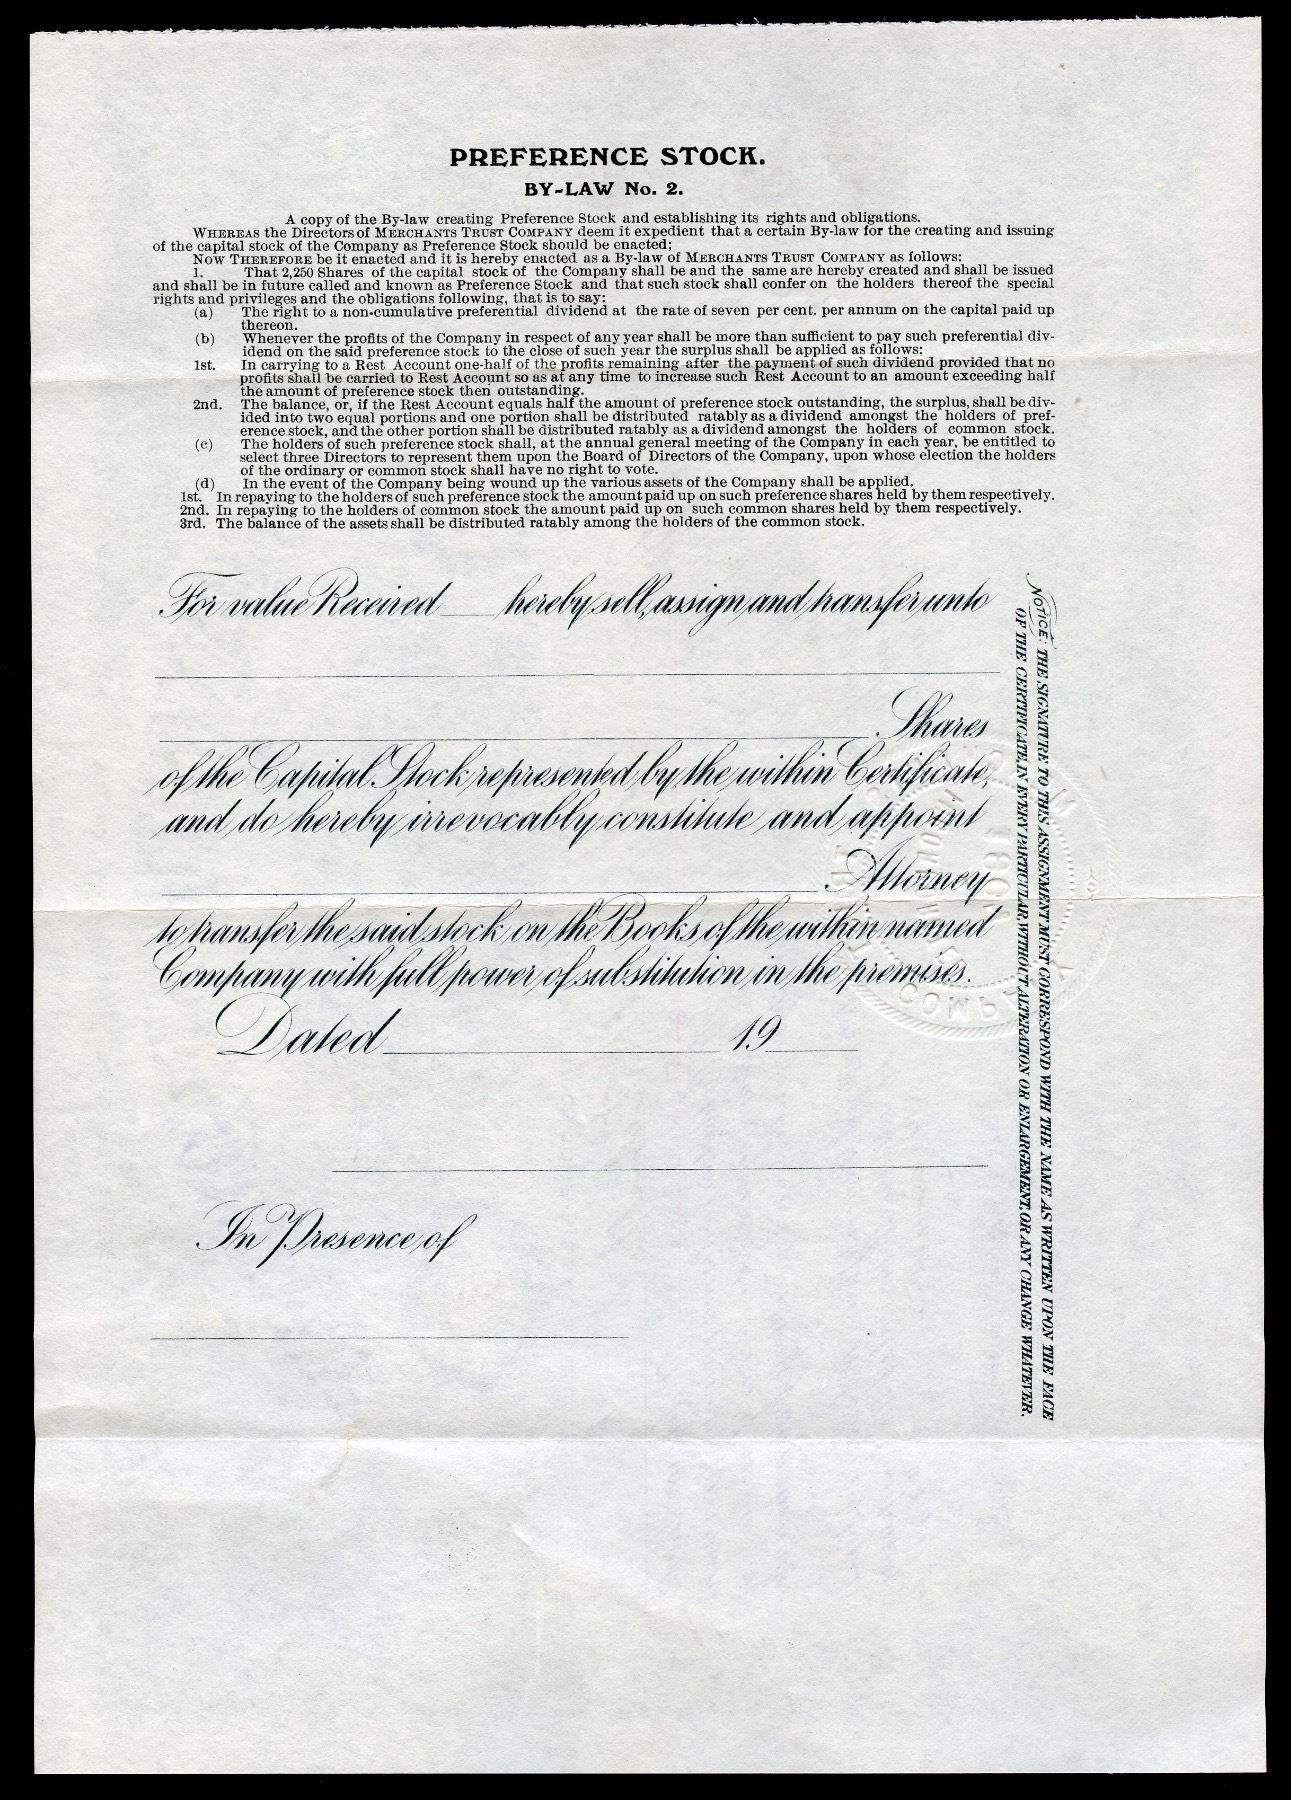 PREFERENCE STOCK.
BY-LAW No. 2.
A copy of the By-law creating Preference Stock and establishing its rights and obligations.
WHEREAS the Directors of MERCHANTS TRUST COMPANY deem it expedient that a certain By-law for the creating and issuing
of the capital stock of the Company as Preference Stock should be enacted;
NOW THEREFORE be it enacted and it is hereby enacted as a By-law of MERCHANTS TRUST COMPANY as follows:
1. That 2,250 Shares of the capital stock of the Company shall be and the same are hereby created and shall be issued
and shall be in future called and known as Preference Stock and that such stock shall confer on the holders thereof the special
rights and privileges and the obligations following, that is to say:
(a) The right to a non-cumulative preferential dividend at the rate of seven per cent. per annum on the capital paid up
thereon.
(b) Whenever the profits of the Company in respect of any year shall be more than sufficient to pay such preferential div-
idend on the said preference stock to the close of such year the surplus shall be applied as follows:
1st. In carrying to a Rest Account one-half of the profits remaining after the payment of such dividend provided that no
profits shall be carried to Rest Account so as at any time to increase such Rest Account to an amount exceeding half
the amount of preference stock then outstanding.
2nd. The balance, or, if the Rest Account equals half the amount of preference stock outstanding, the surplus, shall be div-
ided into two equal portions and one portion shall be distributed ratably as a dividend amongst the holders of pref-
erence stock, and the other portion shall be distributed ratably as a dividend amongst the holders of common stock.
(c) The holders of such preference stock shall, at the annual general meeting of the Company in each year, be entitled to
select three Directors to represent them upon the Board of Directors of the Company, upon whose election the holders
of the ordinary or common stock shall have no right to vote.
(d) In the event of the Company being wound up the various assets of the Company shall be applied.
1st. In repaying to the holders of such preference stock the amount paid up on such preference shares held by them respectively.
2nd. In repaying to the holders of common stock the amount paid up on such common shares held by them respectively.
3rd. The balance of the assets shall be distributed ratably among the holders of the common stock.
For value Received hereby sell, assign and transfer unto
Shares
of the Capital Stock represented by the within Certificate,
and do hereby irrevocably constitute and appoint
Attorney
to transfer the said stock on the Books of the within named
Company with full power of substitution in the premises.
Dated 19
In Presence of
NOTICE: THE SIGNATURE TO THIS ASSIGNMENT MUST CORRESPOND WITH THE NAME AS WRITTEN UPON THE FACE
OF THE CERTIFICATE, IN EVERY PARTICULAR, WITHOUT ALTERATION OR ENLARGEMENT, OR ANY CHANGE WHATEVER.